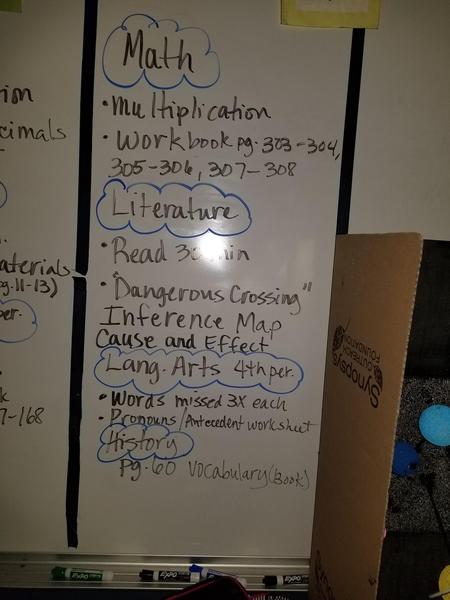 Math
• Multiplication
• Workbook pg. 303-304,
305-306, 307-308
Literature
• Read min
• "Dangerous Crossing"
Inference Map
Cause and Effect
Lang. Arts 4th per.
• Words missed 3X each
• Pronouns/Antecedent worksheet
History
Pg. 60 Vocabulary (Book)
cimals
aterials
pg. 11-13)
per.
7-168
Synopsys
OUTREACH
FOUNDATION
EXPO
EXPO
EXPO